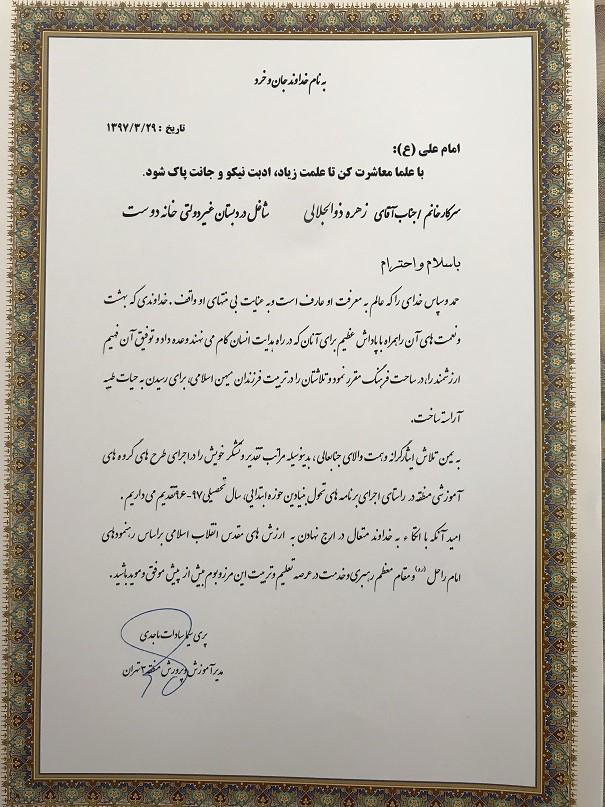 به نام خداوند جان و خرد
تاریخ : ۱۳۹۷/۳/۲۹
امام علی (ع):
با علما معاشرت کن تا علمت زیاد، ادبت نیکو و جانت پاک شود.
سرکار خانم / جناب آقای زهره ذوالجلالی شاغل در دبستان غیر دولتی خانه دوست
باسلام و احترام
حمد و سپاس خدای را که عالم به معرفت او عارف است و به عنایت بی منتهای او واقف . خداوندی که بهشت
و نعمت های آن را همراه با پاداش عظیم برای آنان که در راه هدایت انسان گام می نهند وعده داد و توفیق آن فهیم
ارزشمند را، در ساحت فرهنگ مقرر نمود و تلاشتان را در تربیت فرزندان میهن اسلامی، برای رسیدن به حیات طیبه
آراسته ساخت.
به یمن تلاش ایثارگرانه و همت والای جنابعالی، بدینوسیله مراتب تقدیر و تشکر خویش را در اجرای طرح های گروه های
آموزشی منطقه در راستای اجرای برنامه های تحول بنیادین حوزه ابتدایی، سال تحصیلی ۹۷-۹۶ تقدیم می داریم .
امید آنکه با اتکاء به خداوند متعال در ارج نهادن به ارزش های مقدس انقلاب اسلامی بر اساس رهنمودهای
امام راحل (ره) و مقام معظم رهبری و خدمت در عرصه تعلیم و تربیت این مرز و بوم بیش از پیش موفق و موید باشید .
پری سیما سادات ماجدی
مدیر آموزش و پرورش منطقه ۳ تهران